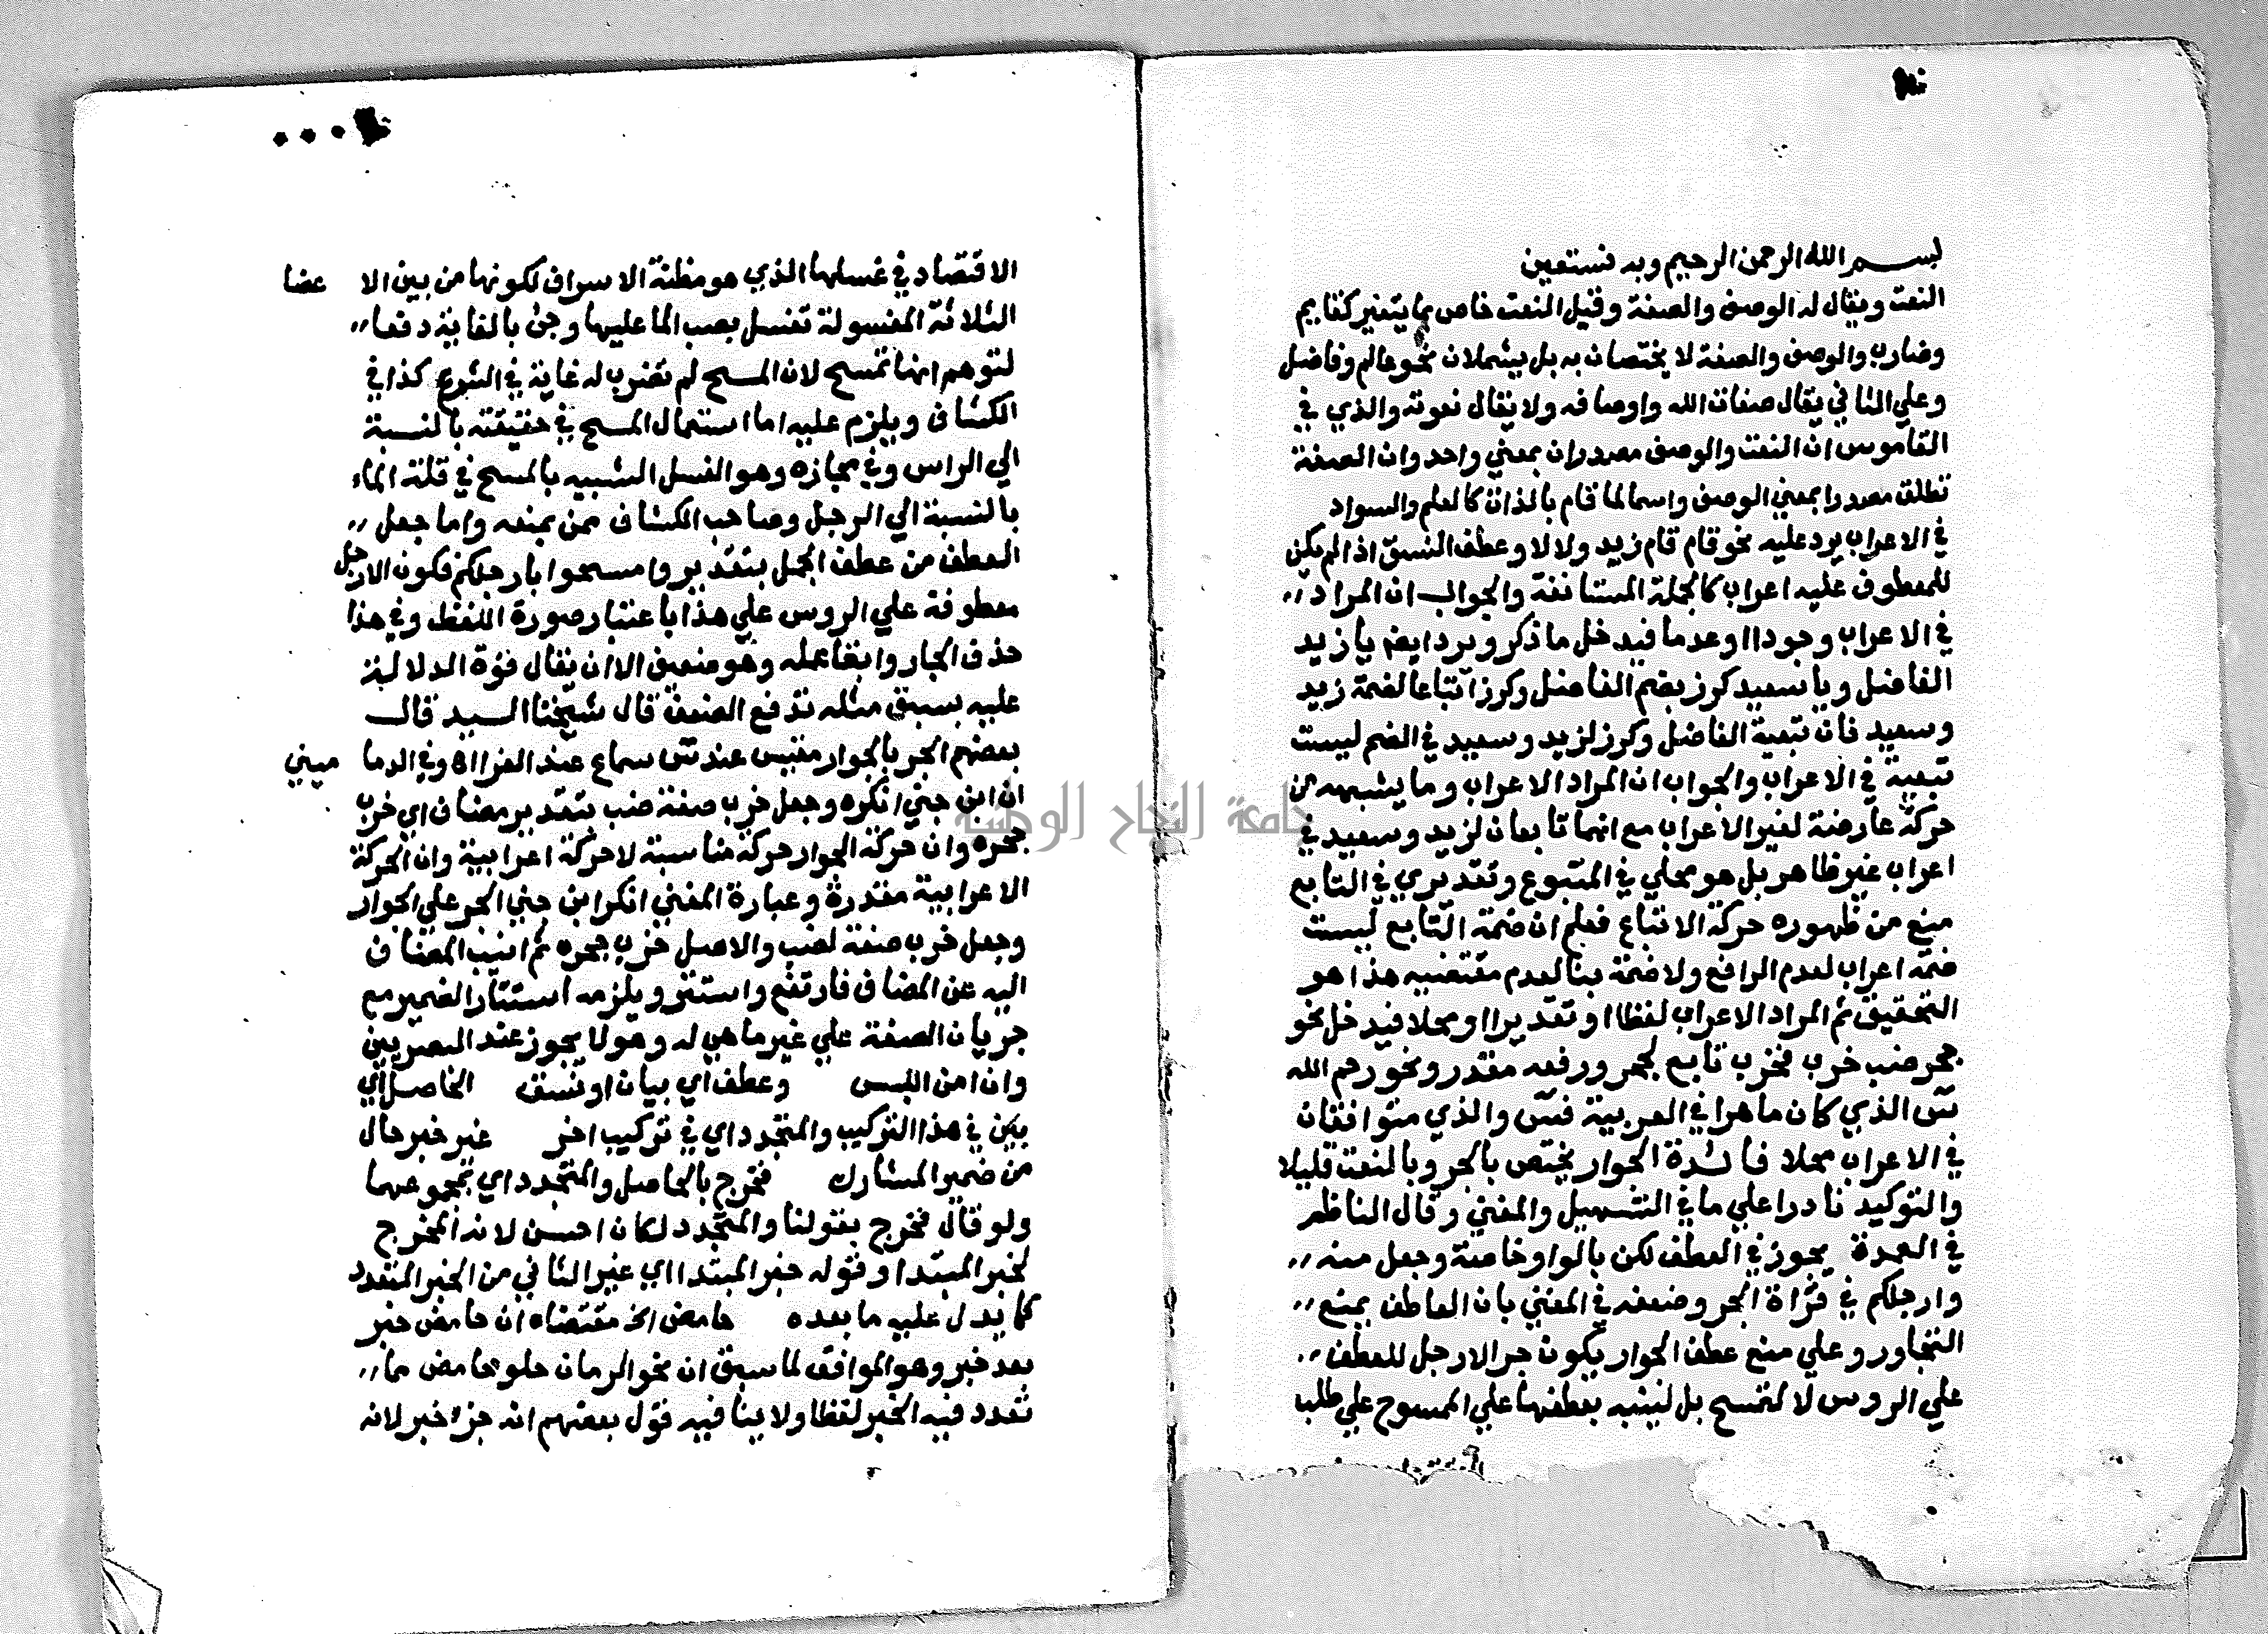 بسم الله الرحمن الرحيم وبه نستعين
النعت ويقال له الوصف والصفة وقيل النعت خاص بما يتغير كقايم
وضارب والوصف والصفة لا يختصان به بل يشملان نحو عالم وفاضل
وعلي الثاني يقال صفات الله واوصافه ولا يقال نعوته والذي في
القاموس ان النعت والوصف مصدران بمعني واحد وان الصفة
تطلق مصدرا بمعني الوصف واسما لما قام بالذات كالعلم والسواد
في الاعراب يرد عليه نحو قام قام زيد ولا لا وعطف النسق اذا لم يكن
للمعطوف عليه اعراب كالجملة المستانفة والجواب ان المراد
في الاعراب وجودا اوعدما فيدخل ما ذكر ويرد ايضم يا زيد
الفاضل ويا سعيد كرز بضم الفاضل وكرز اتباعا لضمة زيد
وسعيد فان تبعية الفاضل وكرز لزيد وسعيد في الضم ليست
تبعية في الاعراب والجواب ان المراد الاعراب وما يشبهه من
حركة عارضة لغير الاعراب مع انهما تابعان لزيد وسعيد في
اعراب غير ظاهر بل هو محلي في المتبوع وتقديري في التابع
منع من ظهوره حركة الاتباع فعلم ان ضمة التابع ليست
ضمة اعراب لعدم الرافع ولا ضمة بنا لعدم مقتضيه هذا هو
التحقيق ثم المراد الاعراب لفظا او تقديرا او محلا فيدخل نحو
جحر ضب خرب فخرب تابع لجحر ورفعه مقدر ونحو رحم الله
سَ الذي كان ماهرا في العربية فسَ والذي متوافقان
في الاعراب محلا فائدة الجوار يختص بالجر وبالنعت قليلا
والتوكيد نادرا علي ما في التسهيل والمغني وقال الناظم
في العمدة يجوز في العطف لكن بالواو خاصة وجعل منه
وارجلكم في قراة الجر وضعفه في المغني بان العاطف يمنع
التجاور وعلي منع عطف الجوار يكون جر الارجل للعطف
علي الروس لا لتمسح بل لينبه بعطفها علي الممسوح علي طلب
الاقتصاد في غسلها الذي هو مظنة الاسراف لكونها من بين الا عضا
الثلاثة المغسولة تغسل بصب الما عليها وجئ بالغاية دفعا
لتوهم انها تمسح لان المسح لم تضرب له غاية في الشرع كذا في
الكشاف ويلزم عليه اما استعمال المسح في حقيقته بالنسبة
الي الراس وفي مجازه وهو الغسل الشبيه بالمسح في قلة الماء
بالنسبة الي الرجل وصاحب الكشاف ممن يمنعه واما جعل
العطف من عطف الجمل بتقدير وامسحوا بارجلكم فكون الارجل
معطوفة علي الروس علي هذا باعتبار صورة اللفظ وفي هذا
حذف الجار وابقا عمله وهو ضعيف الا ان يقال قوة الدلالة
عليه بسبق مثله تدفع الضعف قال شيخنا السيد قال
بعضهم الجر بالجوار مقيس عند سَ سماع عند الفرا اه وفي الدما ميني
ان ابن جني انكره وجعل خرب صفة ضب بتقدير مضاف اي خرب
جحره وان حركة الجوار حركة مناسبة لا حركة اعرابية وان الحركة
الاعرابية مقدرة وعبارة المغني انكر ابن جني الجر علي الجوار
وجعل خرب صفة لضب والاصل خرب جحره ثم انيب المضاف
اليه عن المضاف فارتفع واستتر ويلزمه استتار الضمير مع
جريان الصفة علي غير ما هي له وهو لا يجوز عند البصريين
وان امن اللبس وعطف اي بيان او نسق الحاصل اي
بين في هذا التركيب والمتجدد اي في تركيب اخر غير خبر حال
من ضمير المشارك فخرج بالحاصل والمتجدد اي بمجموعهما
ولو قال فخرج بقولنا والمتجدد لكان احسن لانه المخرج
لخبر المبتدا وقوله خبر المبتدا اي غير الثاني من الخبر المتعدد
كما يدل عليه ما بعده حامض الخ مقتضاه ان حامض خبر
بعد خبر وهو الموافق لما سبق ان نحو الرمان حلو حامض مما
تعدد فيه الخبر لفظا ولا ينافيه قول بعضهم انه جزا خبر لانه
جامعة النجاح الوطنية